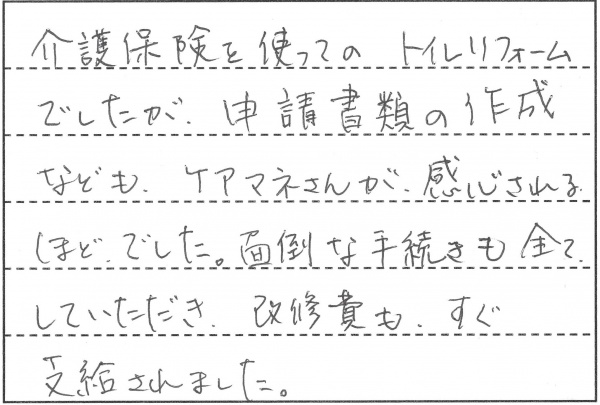 介護保険を使っての トイレリフォーム
でしたが、申請書類の作成
なども、ケアマネさんが、感心される
ほど、でした。面倒な手続きも全て、
していただき、改修費も、すぐ
支給されました。